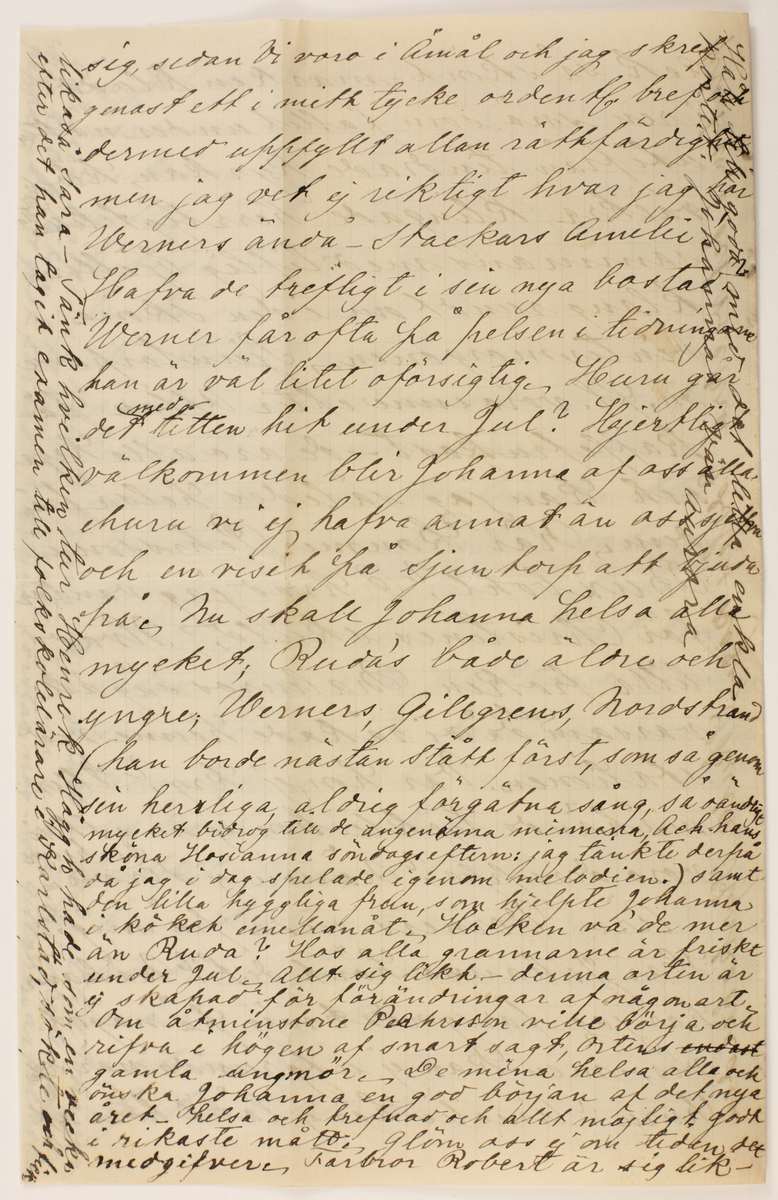 sig, sedan Vi voro i Åmål och jag skref
genast ett i mitt tycke ordentl bref och
dermed uppfyllt allan räthfärdighet
men jag vet ej riktigt hvar jag har
Werners ändå – Stackars Amelie
Hafva de trefligt i sin nya bostad
Werner får ofta på pelsen i tidningarne
han är väl litet oförsigtig. Huru går
det med titten hit under Jul? Hjertligt
välkommen blir Johanna af oss alla
ehuru vi ej hafva annat än oss sjelfva
och en visit på Sjuntorp att bjuda
på. Nu skall Johanna helsa alla
mycket; Rudas både äldre och
yngre; Werners, Gillgrens, Nordstrand
(han borde nästan stått först, som så genom
sin herrliga, aldrig förgätna sång, så oändligt
mycket bidrog till de angenäma minnena, Ach hans
sköna Hosianna söndagseftern: jag tänkte derpå
då jag i dag spelade igenom melodien.) samt
den lilla hyggliga frun, som hjelpte Johanna
i köket emellanåt. Hocken va' de mer
än Ruda? Hos alla grannarne är friskt
under Jul. Allt sig likt – denna orten är
ej skapad för förändringar af någon art.
Om åtminstone Pehrsson ville börja och
rifva i högen af snart sagt, ortens endast
gamla ungmör. De mina helsa alla och
önska Johanna en god början af det nya
året – helsa och trefnad och allt möjligt godt
i rikaste mått. Glöm oss ej nu tiden det
medgifver. Farbror Robert är sig lik –
likaså Sara – Tänk hvilken tur Henrik Hägg hade som en vecka
efter det han tagit examen till folkskolelärare i Karlstad, sökte och fick
Håll till godo med det lilla enkla
Johanna från